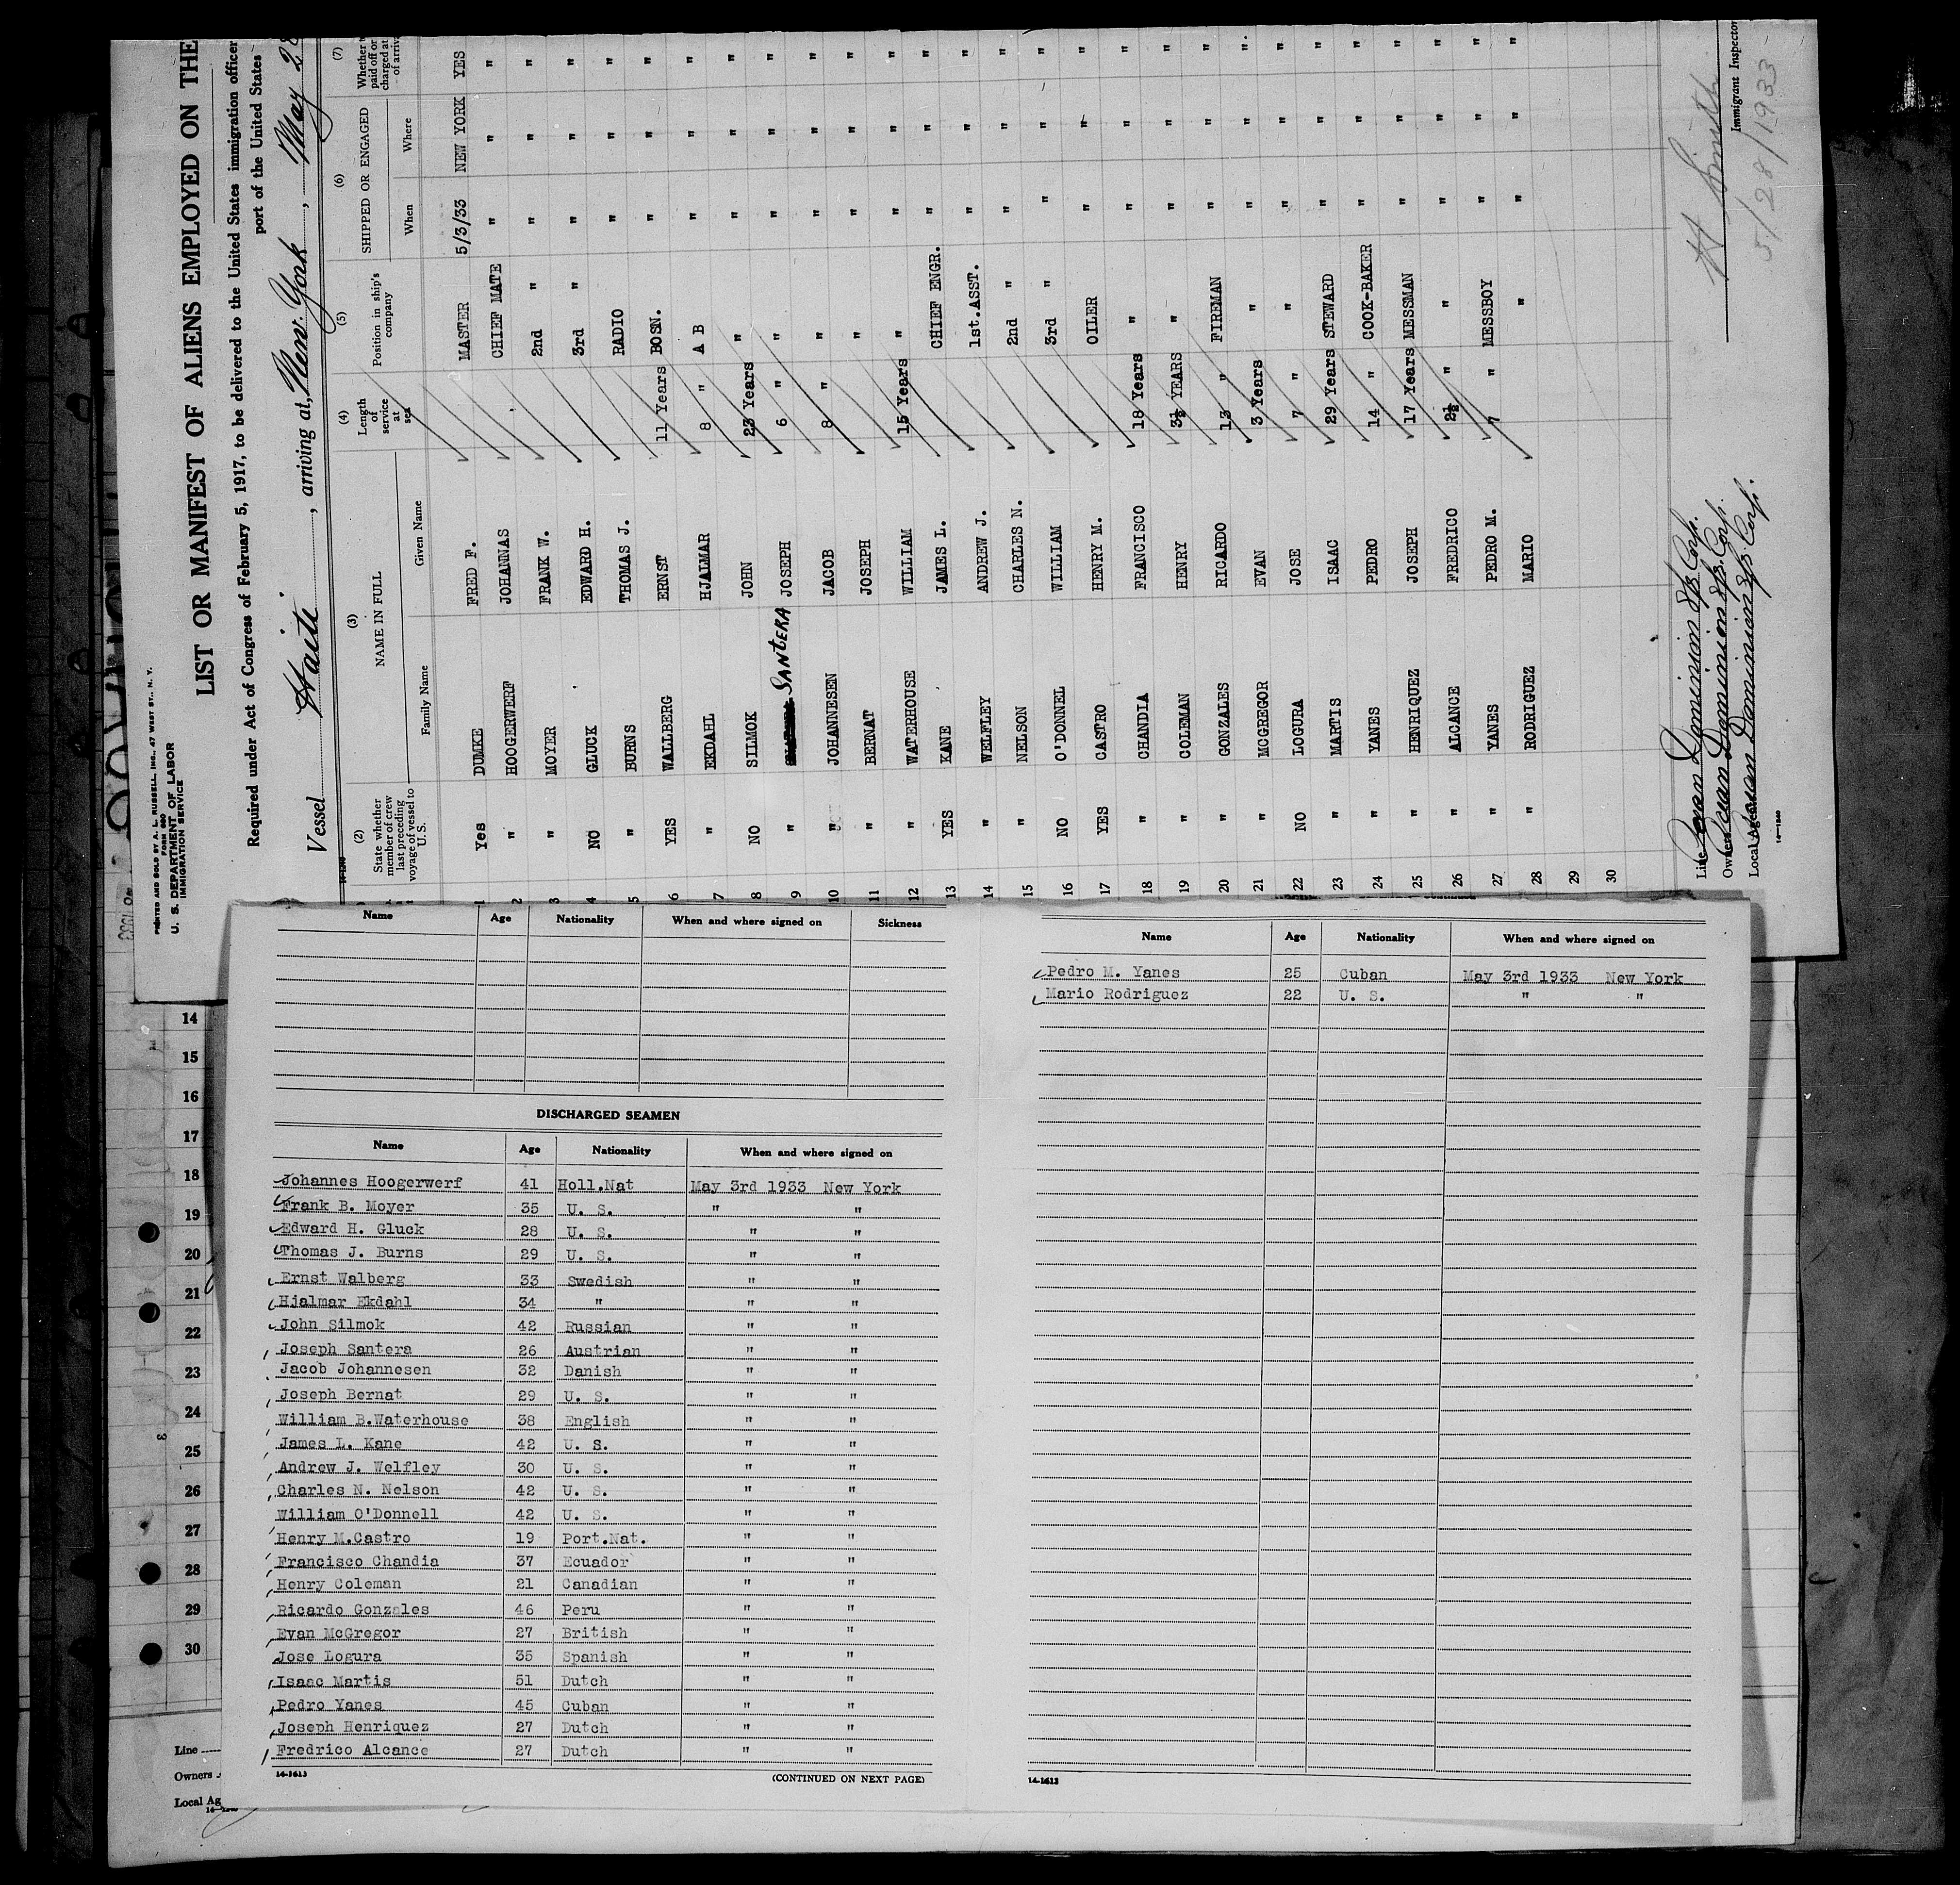 PRINTED AND SOLD BY A. L. RUSSELL, INC., 47 WEST ST., N. Y.
FORM 680
U. S. DEPARTMENT OF LABOR
IMMIGRATION SERVICE
LIST OR MANIFEST OF ALIENS EMPLOYED ON THE
Required under Act of Congress of February 5, 1917, to be delivered to the United States immigration officer
port of the United States
Vessel Haiti, arriving at New York, May 28
(2) (3) (4) (5) (6) (7)
State whether member of crew last preceding voyage of vessel to U. S. NAME IN FULL Length of service at sea Position in ship's company SHIPPED OR ENGAGED
Family Name Given Name When Where
1 Yes DUMKE FRED F. MASTER 5/3/33 NEW YORK YES
2 " HOOGERWERF JOHANNAS CHIEF MATE " " "
3 " MOYER FRANK W. 2nd " " " "
4 NO GLUCK EDWARD H. 3rd " " " "
5 " BURNS THOMAS J. RADIO " " "
6 YES WALLBERG ERNST 11 Years BOSN. " " "
7 " EKDAHL HJALMAR 8 " A B " " "
8 NO SILMOK JOHN 23 Years " " " "
9 " SANTERA JOSEPH 6 " " " " "
10 " JOHANNESEN JACOB 8 " " " " "
11 " BERNAT JOSEPH " " " "
12 " WATERHOUSE WILLIAM 15 Years " " " "
13 YES KANE JAMES L. CHIEF ENGR. " " "
14 " WELFLEY ANDREW J. 1st.ASST. " " "
15 " NELSON CHARLES N. 2nd " " " "
16 NO O'DONNEL WILLIAM 3rd " " " "
17 YES CASTRO HENRY M. OILER " " "
18 " CHANDIA FRANCISCO 18 Years " " " "
19 " COLEMAN HENRY 3½ YEARS " " " "
20 " GONZALES RICARDO 13 " FIREMAN " " "
21 " MCGREGOR EVAN 3 Years " " " "
22 NO LOGURA JOSE 7 " " " " "
23 " MARTIS ISAAC 29 Years STEWARD " " "
24 " YANES PEDRO 14 " COOK-BAKER " " "
25 " HENRIQUEZ JOSEPH 17 Years MESSMAN " " "
26 " ALCANCE FREDRICO 2½ " " " " "
27 " YANES PEDRO M. 7 " MESSBOY " " "
28 " RODRIGUEZ MARIO " " " "
29
30
Line Ocean Dominion SS. Corp.
Owners Ocean Dominion SS. Corp.
Local Agents Ocean Dominion SS. Corp.
14—1240
H Smith
Immigrant Inspector
5/28/1933
Name Age Nationality When and where signed on Sickness
DISCHARGED SEAMEN
Name Age Nationality When and where signed on
Johannes Hoogerwerf 41 Holl.Nat May 3rd 1933 New York
Frank B. Moyer 35 U. S. " "
Edward H. Gluck 28 U. S. " "
Thomas J. Burns 29 U. S. " "
Ernst Walberg 33 Swedish " "
Hjalmar Ekdahl 34 " " "
John Silmok 42 Russian " "
Joseph Santera 26 Austrian " "
Jacob Johannesen 32 Danish " "
Joseph Bernat 29 U. S. " "
William B.Waterhouse 38 English " "
James L. Kane 42 U. S. " "
Andrew J. Welfley 30 U. S. " "
Charles N. Nelson 42 U. S. " "
William O'Donnell 42 U. S. " "
Henry M.Castro 19 Port.Nat. " "
Francisco Chandia 37 Ecuador " "
Henry Coleman 21 Canadian " "
Ricardo Gonzales 46 Peru " "
Evan McGregor 27 British " "
Jose Logura 35 Spanish " "
Isaac Martis 51 Dutch " "
Pedro Yanes 45 Cuban " "
Joseph Henriquez 27 Dutch " "
Fredrico Alcance 27 Dutch " "
14-1613 (CONTINUED ON NEXT PAGE)
Name Age Nationality When and where signed on
Pedro M. Yanes 25 Cuban May 3rd 1933 New York
Mario Rodriguez 22 U. S. " "
14-1613
14
15
16
17
18
19
20
21
22
23
24
25
26
27
28
29
30
Line
Owners
Local Ag